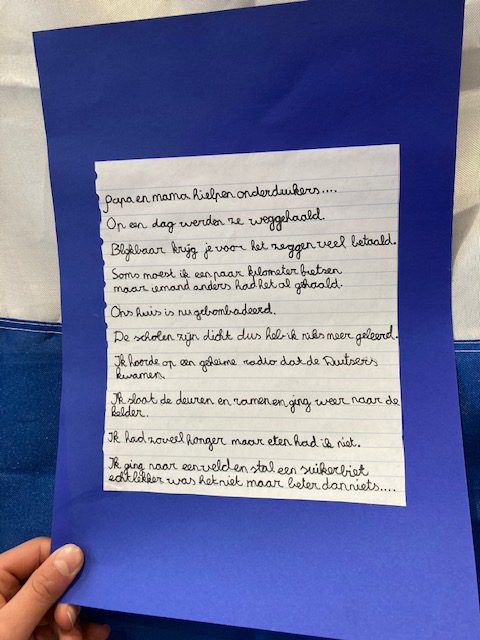 papa en mama hielpen onderdeukers....
Op een dag werden ze weggehaald.
Blijkbaar krijg je voor het zeggen veel betaald.
Soms moest ik een paar kilometer fietsen
maar iemand anders had het al gehaald.
Ons huis is nu gebombadeerd.
De scholen zijn dicht dus heb ik niks meer geleerd.
Ik hoorde op een geheime radio dat de Duitsers
kwamen.
Ik sloot de deuren en ramen en ging weer naar de
kelder.
Ik had zoveel honger maar eten had ik niet.
Ik ging naar een veld en stal een suikerbiet
echt lekker was het niet maar beter dan niets....